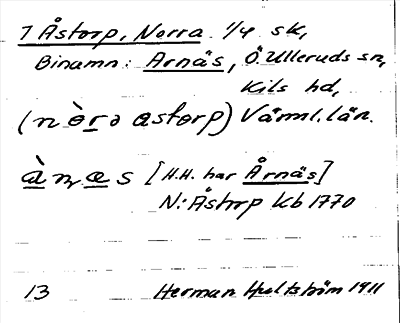 7 Åstorp, Norra. 1/4 sk,
Binamn: Arnäs, Ö. Ulleruds sn,
Kils hd,
(nòrə astorp) Värml. län.
ànæs [H.H. har Årnäs]
N: Åstorp Kb 1770
13 Herman Hultström 1911